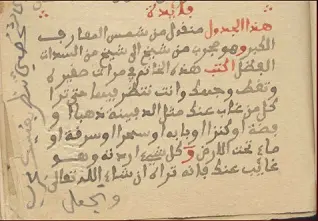 فايدة
هذا الجدول منقول من شمس المعارف
الكبر وهو مجرب من شيخ الى شيخ من السادات
الفضل اكتب هذه الخاتم في مرات صغيره
وتغط وجهك وانت تنظر فيها حتى ترا
كل من غاب عنك مثل الدفينة ذهبا او
فضة او كنزا او بابه او سحرا او سرقة او
ما تحت الارض وكل شيء اردته وهو
غائب عنك فانه تراه ان شاء الله تعالى